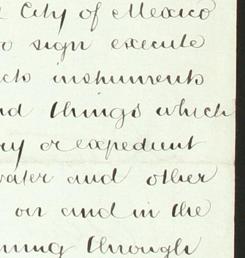 City of Mexico
sign execute
instruments
things which
or expedient
water and other
on and in the
through